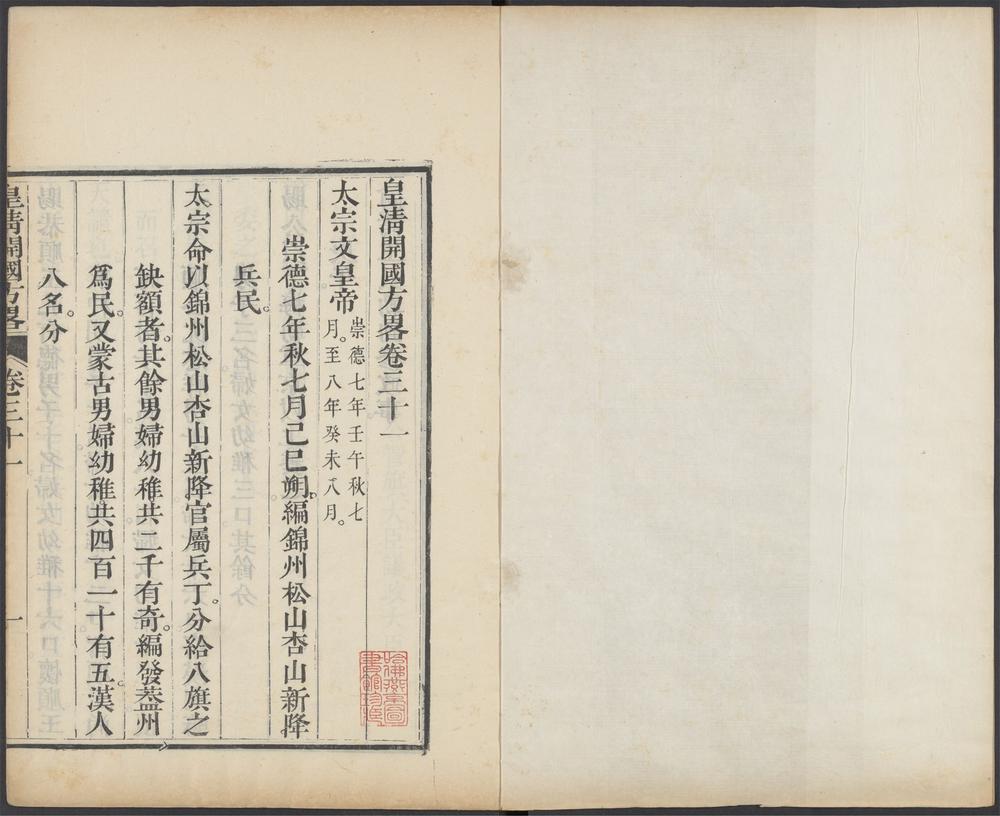 皇淸開國方畧卷三十一
太宗文皇帝
崇德七年壬午秋七
月。至八年癸未八月。
崇德七年秋七月己巳朔。編錦州松山杏山新降
兵民。
太宗命以錦州松山杏山新降官屬兵丁。分給八旗之
缺額者。其餘男婦幼稚共二千有奇。編發葢州
爲民。又蒙古男婦幼稚共四百一十有五。漢人
八名。分
皇淸開國方畧 卷三十一 一
哈佛燕京圖
書館珍藏